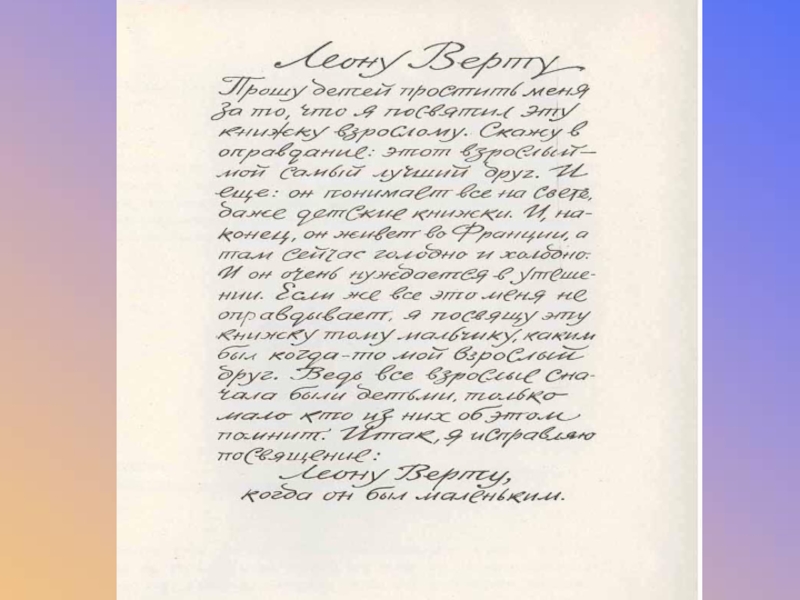 Леону Верту
Прошу детей простить меня
за то, что я посвятил эту
книжку взрослому. Скажу в
оправдание: этот взрослый—
мой самый лучший друг. И
еще: он понимает все на свете,
даже детские книжки. И, на-
конец, он живет во Франции, а
там сейчас голодно и холодно.
И он очень нуждается в утеше-
нии. Если же все это меня не
оправдывает, я посвящу эту
книжку тому мальчику, каким
был когда-то мой взрослый
друг. Ведь все взрослые сна-
чала были детьми, только
мало кто из них об этом
помнит. Итак, я исправляю
посвящение:
Леону Верту,
когда он был маленьким.